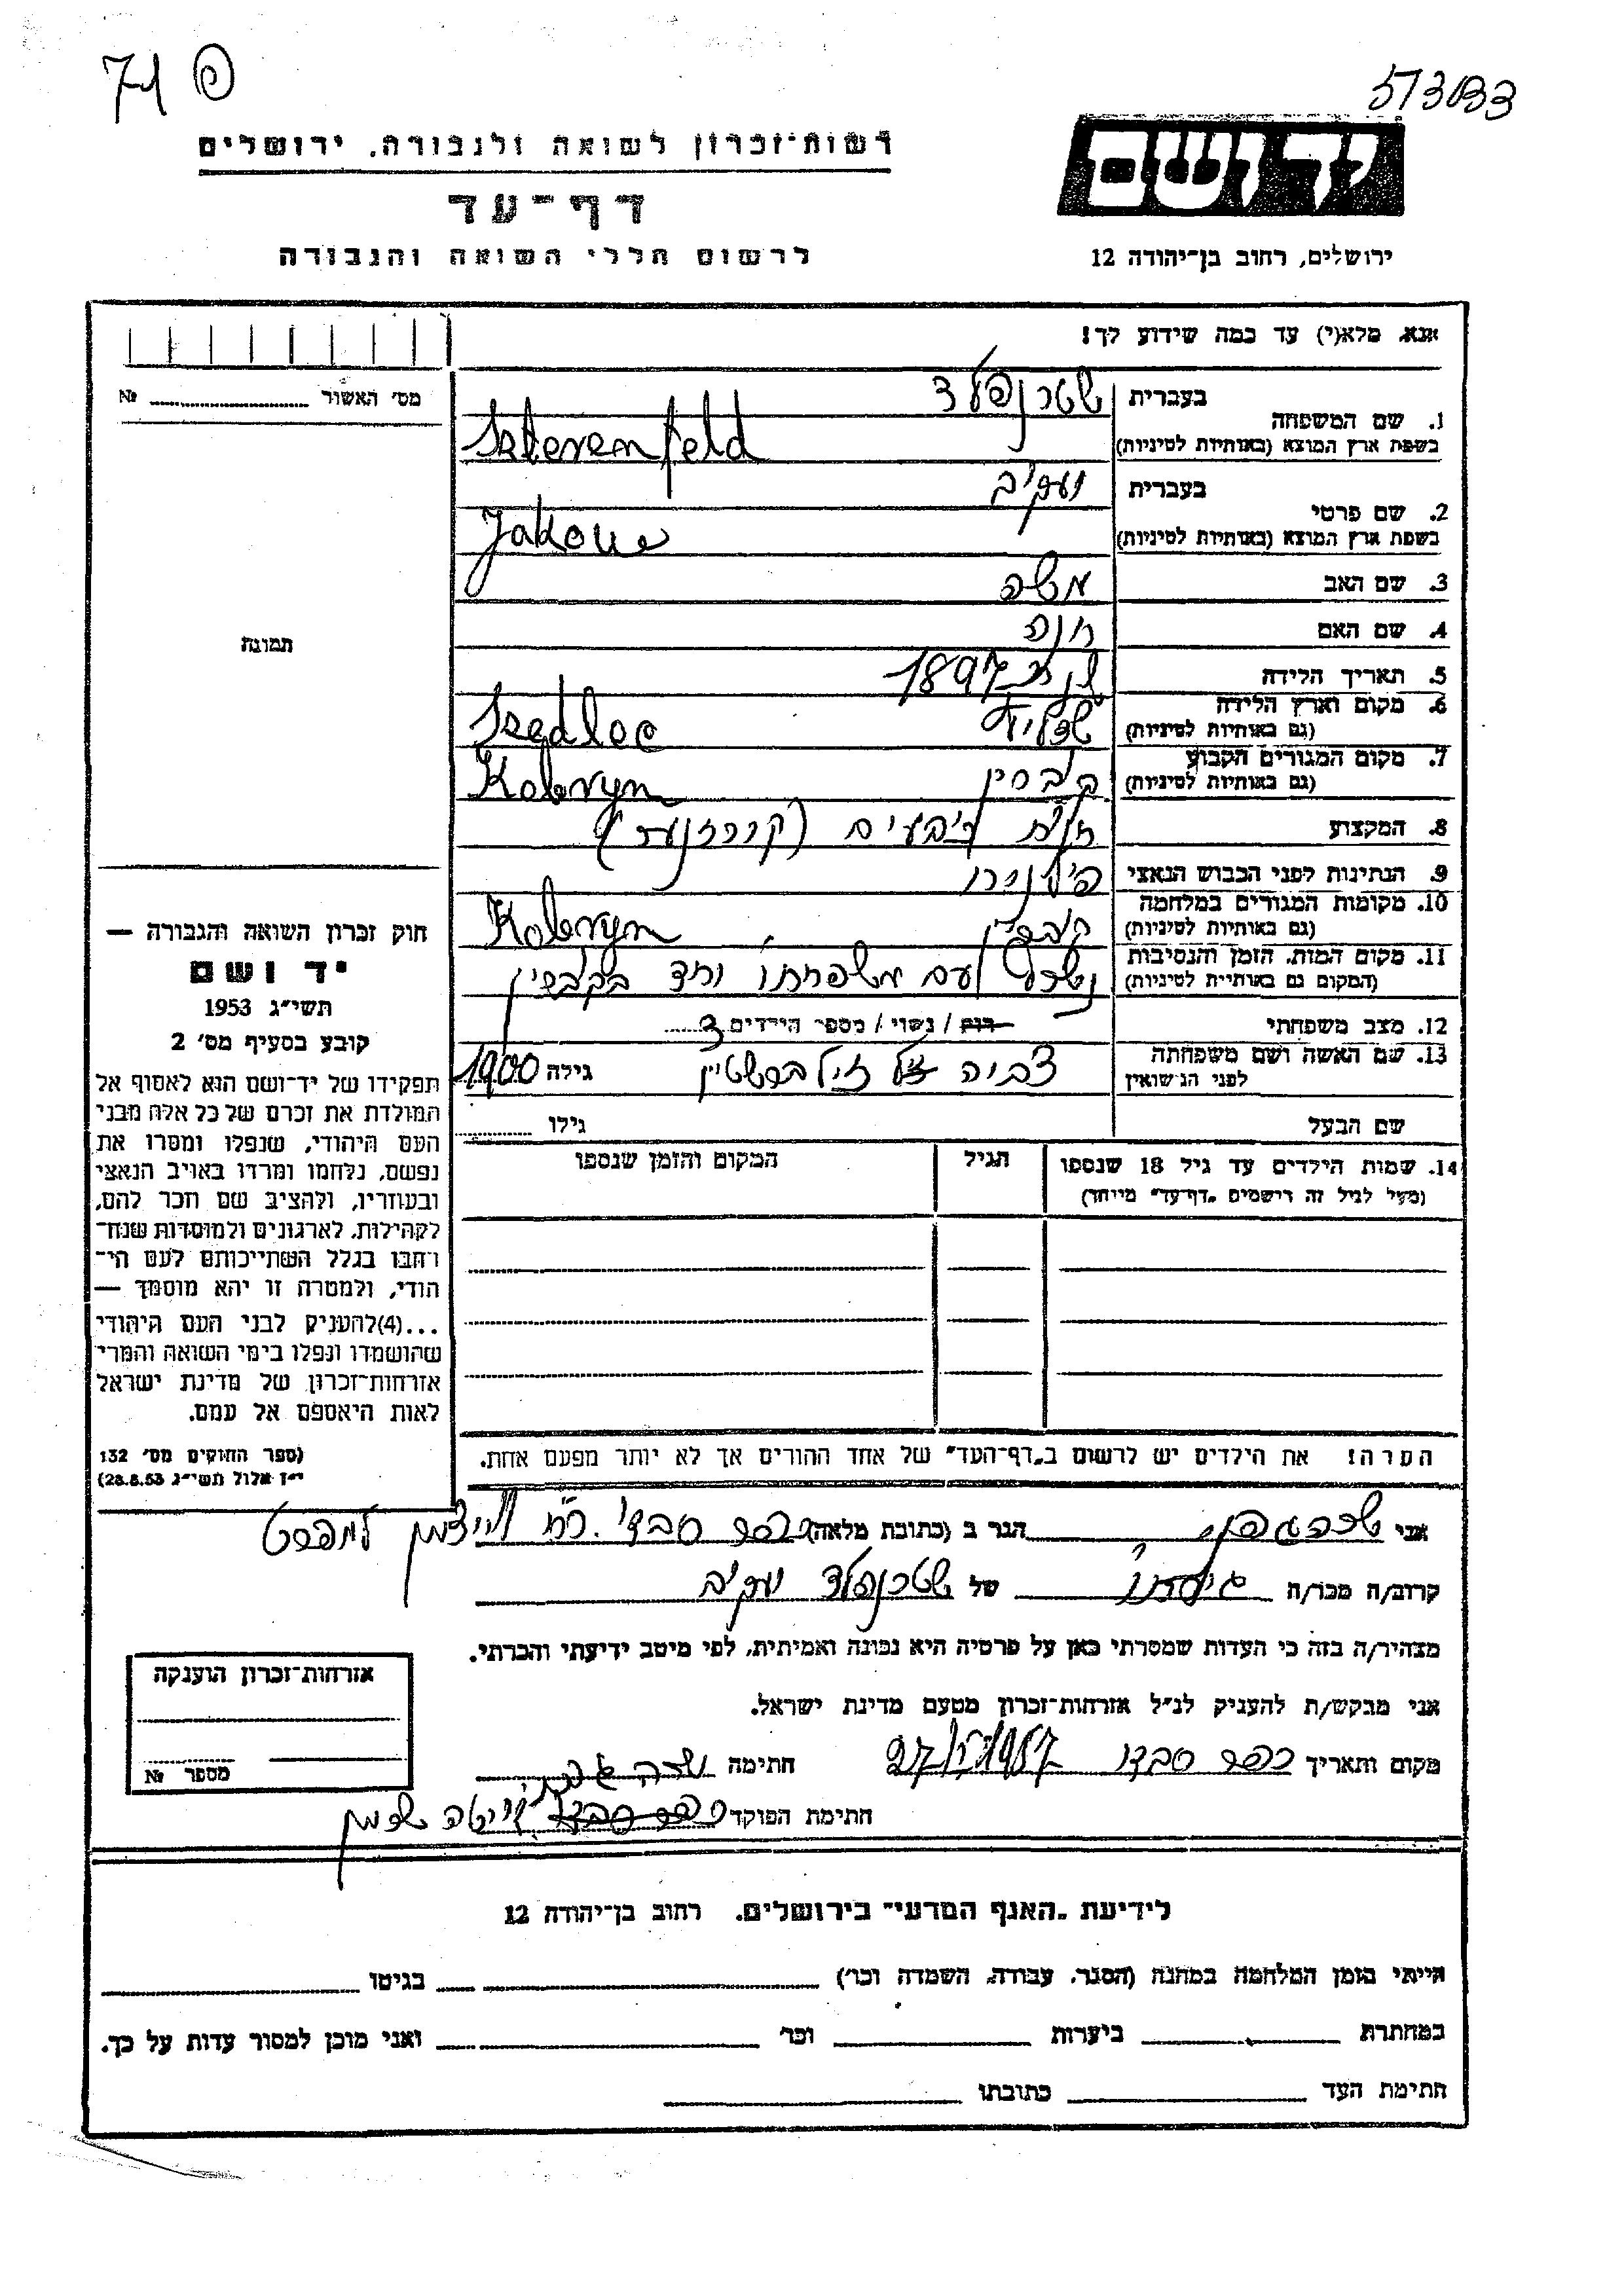 71 פ
573033
רשות-זכרון לשואה ולגבורה, ירושלים
יד ושם
דף-עד
לרשום חללי השואה והגבורה
ירושלים, רחוב בן-יהודה 12
אנא, מלא(י) עד כמה שידוע לך!
מס' האשור № 
1. שם המשפחה בעברית שטרנפלד
בשפת ארץ המוצא (באותיות לטיניות) Szterenfeld
2. שם פרטי בעברית יעקיב
בשפת ארץ המוצא (באותיות לטיניות) Jakow
3. שם האב משה
4. שם האם חנה
5. תאריך הלידה 1897
6. מקום וארץ הלידה
(גם באותיות לטיניות) שדליץ Szedlec
7. מקום המגורים הקבוע
(גם באותיות לטיניות) קוברין Kobryn
8. המקצוע
9. הנתינות לפני הכבוש הנאצי
10. מקומות המגורים במלחמה
(גם באותיות לטיניות) קוברין Kobryn
11. מקום המות, הזמן והנסיבות
(המקום גם באותיית לטיניות) עם משפחתו יחד בקוברין
12. מצב משפחתי רוק / נשוי / מספר הילדים 3
13. שם האשה ושם משפחתה
לפני הנישואין צביה זילברשטיין גילה 1900
שם הבעל גילו
14. שמות הילדים עד גיל 18 שנספו
(מעל לגיל זה רישמים "דף-עד" מייחד)
הגיל
המקום והזמן שנספו
הערה! את הילדים יש לרשום ב"דף-העד" של אחד ההורים אך לא יותר מפעם אחת.
תמונה
חוק זכרון השואה והגבורה —
יד ושם
תשי"ג 1953
קובע בסעיף מס' 2
תפקידו של יד-ושם הוא לאסוף אל
המולדת את זכרם של כל אלה מבני
העם היהודי, שנפלו ומסרו את
נפשם, נלחמו ומרדו באויב הנאצי
ובעוזריו, ולהציב שם וזכר להם,
לקהילות, לארגונים ולמוסדות שנח-
רחבו בגלל השתייכותם לעם הי-
הודי, ולמטרה זו יהא מוסמך —
...(4)להעניק לבני העם היהודי
שהושמדו ונפלו בימי השואה והמרי
אזרחות-זכרון של מדינת ישראל
לאות היאספם אל עמם.
(ספר החוקים מס' 132
י"ז אלול תשי"ג 28.8.53)
אני שרה גפני הגר ב (כתובת מלאה) כפר סבא, רח' ויצמן
קרוב/ה מכר/ה גיסתו של שטרנפלד יעקיב
מצהיר/ה בזה כי העדות שמסרתי כאן על פרטיה היא נכונה ואמיתית, לפי מיטב ידיעתי והכרתי.
אני מבקש/ת להעניק לנ"ל אזרחות-זכרון מטעם מדינת ישראל.
מקום ותאריך כפר סבא 1957 חתימה שרה גפני
חתימת הפוקד
אזרחות-זכרון הוענקה
מספר №
לידיעת "האגף המדעי" בירושלים, רחוב בן-יהודה 12
הייתי בזמן המלחמה במחנה (הסגר, עבודה, השמדה וכו') בגיטו
במחתרת ביערות וכו' ואני מוכן למסור עדות על כך.
חתימת העד כתובתו